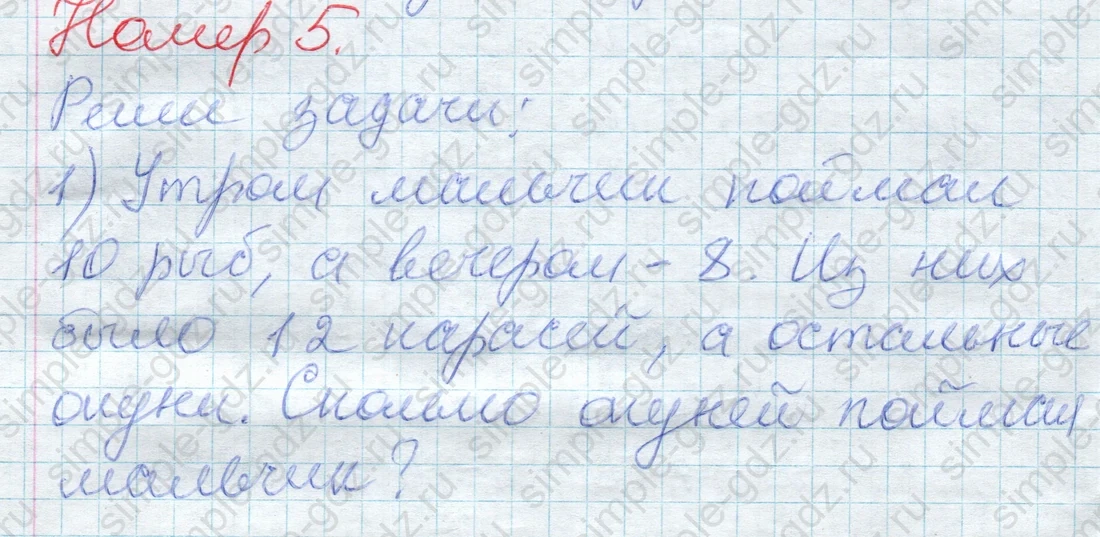 Номер 5.
Реши задачи:
1) Утром мальчик поймал
10 рыб, а вечером - 8. Из них
было 12 карасей, а остальные
окуни. Сколько окуней поймал
мальчик?